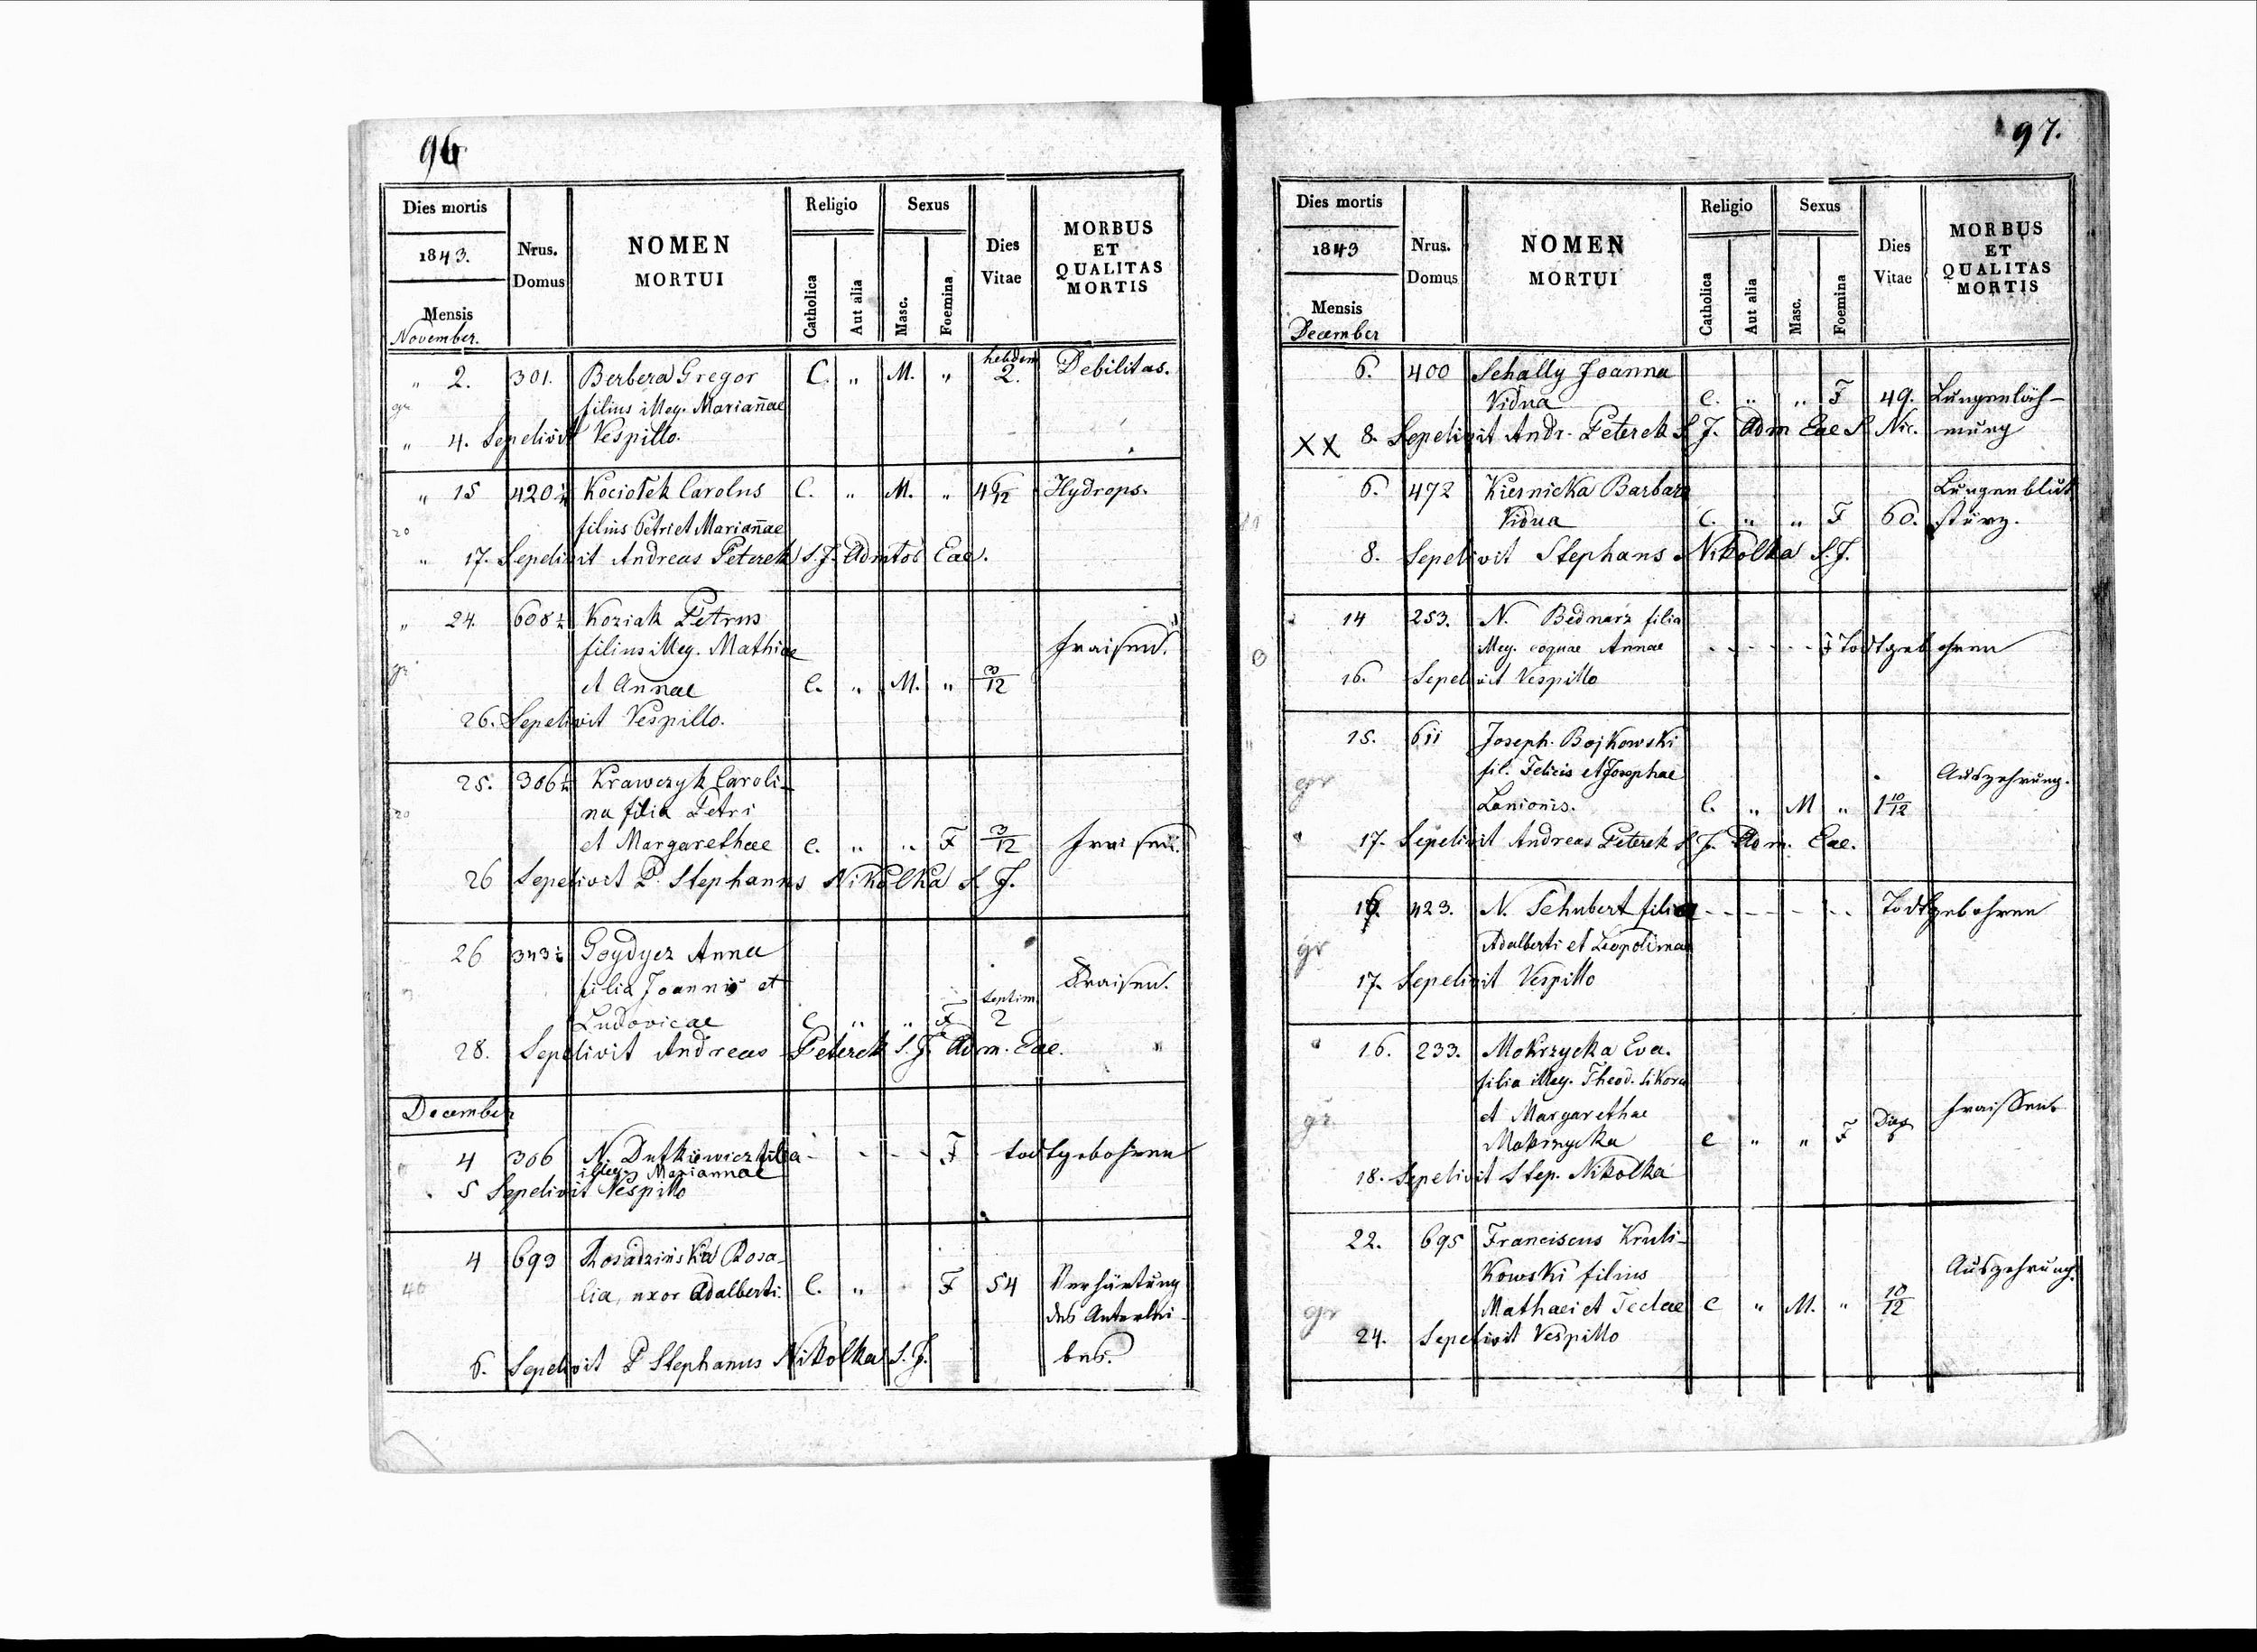 96
Dies mortis
1843.
Mensis
November.
Nrus.
Domus
NOMEN
MORTUI
Religio
Catholica
Aut alia
Sexus
Masc.
Foemina
Dies
Vitae
MORBUS
ET
QUALITAS
MORTIS
" 2. 301. Berbera Gregor C. " M. " hebdom 2. Debilitas.
gr filius illeg. Mariañae
" 4. Sepelivit Vespillo.
" 15 420 1/2 Kociołek Carolus C. " M. " 4 6/12 Hydrops.
20 filius Petri et Mariañae
" 17. Sepelivit Andreas Peterek S. J. Admtor Eae.
" 24. 608 1/2 Koziak Petrus
filius illeg. Mathiae Fraisen.
gr et Annae C. " M. " 3/12
26. Sepelivit Vespillo.
25. 306 1/2 Krawczyk Caroli-
20 na filia Petri
et Margarethae C. " " F 3/12 Fraisen.
26 Sepelivit P. Stephanus Nikolka S. J.
26 343 1/2 Goydycz Anna
filia Joannis et Fraisen.
Ludovicae C " " F septim. 2
28. Sepelivit Andreas Peterek S. J. Adm. Eae.
December
4 306 N. Dutkiewicz filia - - - - F todtgebohren
illeg. Mariannae
5 Sepelivit Vespillo
4 693 Rosadzińska Rosa-
40 lia, uxor Adalberti. C. " F 54 Verhärtung
des Unterlei-
bes.
6. Sepelivit P Stephanus Nikolka S. J.
97.
Dies mortis
1843
Mensis
December
Nrus.
Domus
NOMEN
MORTUI
Religio
Catholica
Aut alia
Sexus
Masc.
Foemina
Dies
Vitae
MORBUS
ET
QUALITAS
MORTIS
6. 400 Schally Joanna
Vidua C. " " F 49. Lungenläh-
XX 8. Sepelivit Andr. Peterek S. J. Adm Eae S. Nic. mung
6. 472 Kiernicka Barbara Lungenblut
Vidua C. " " F 60. sturz.
8. Sepelivit Stephans Nikolka S. J.
14 253. N. Bednarz filia
illeg. coquae Annae - - - - - F Todtgebohren
16. Sepelivit Vespillo
15. 611 Joseph. Bojkowski
gr fil. Felicis et Josephae Auszehrung.
Lanionis. C. " M " 1 10/12
" 17. Sepelivit Andreas Peterek S. J. Adm. Eae.
16. 423. N. Schubert filia - - - - - Todtgebohren
gr Adalberti et Leopoldinae
17. Sepelivit Vespillo
" 16. 233. Mokrzycka Eva.
filia illeg. Theod. Sikora
gr. et Margarethae Fraissen.
Mokrzycka C " " F Dies
18. Sepelivit Step. Nikolka
22. 695 Franciscus Kruli-
kowski filius Auszehrung.
gr Mathaei et Teclae C " M. " 10/12
24. Sepelivit Vespillo